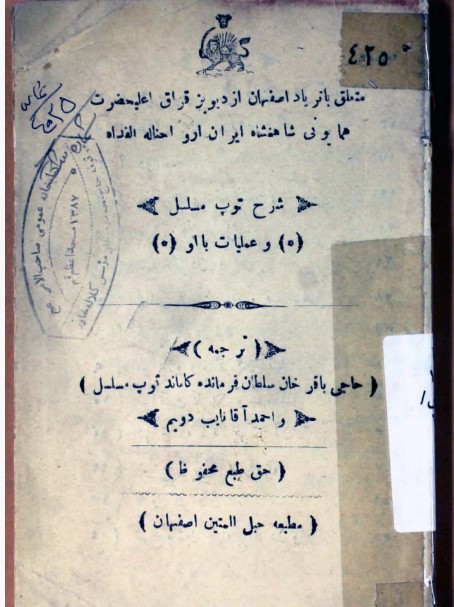 ٤٢٥٠
متعلق باتریاد اصفهان از دیویز قزاق اعلیحضرت
همایونی شاهنشاه ایران ارو احناله الفداه
شرح توپ مسلسل
(٥) و عملیات با او (٥)
( ترجمه )
( حاجی باقر خان سلطان فرمانده کاماند توپ مسلسل )
و احمد آقا نایب دویم
( حق طبع محفو ظا )
( مطبعه حبل المتین اصفهان )
کتابخانه عمومی صاحب الامر
١٣٨٧